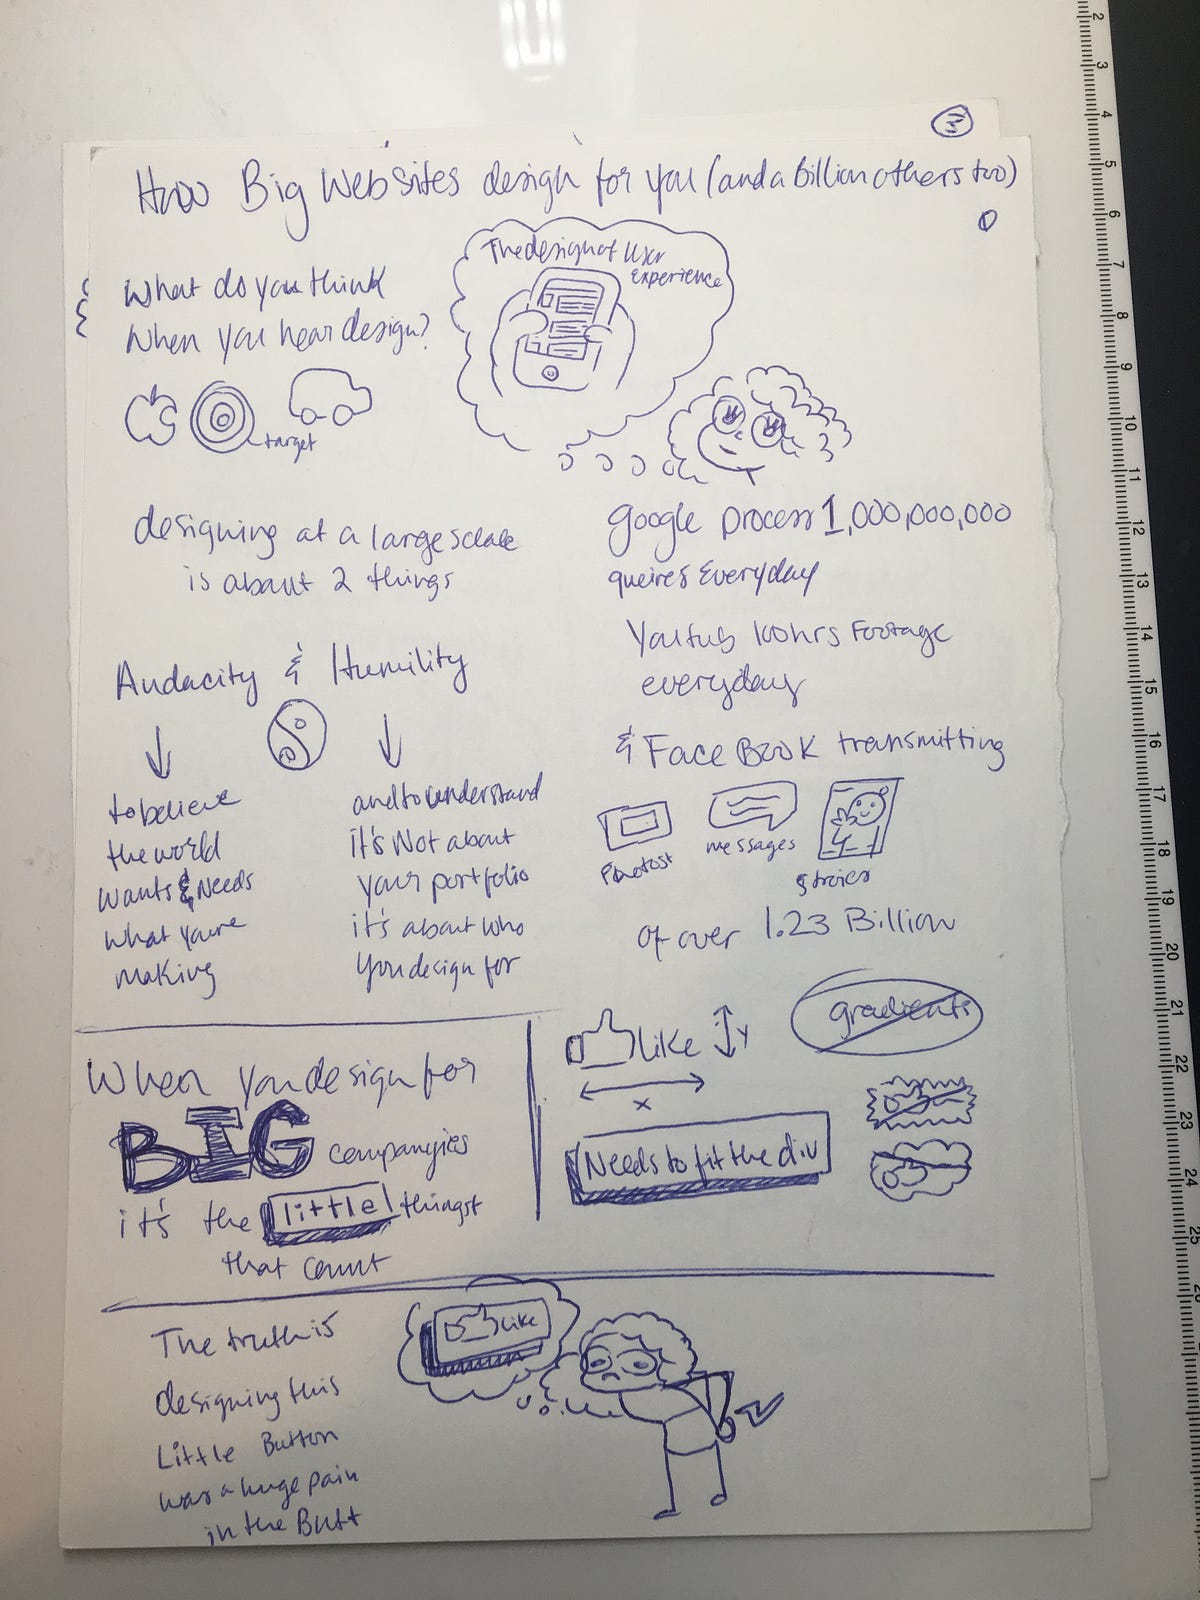 3
How Big Websites design for you (and a billion others too)
What do you think
When you hear design?
target
The design of User
Experience
designing at a large sclale
is about 2 things
Audacity & Humility
to believe
the world
wants & Needs
what you're
making
and to understand
it's Not about
your portfolio
it's about who
you design for
google process 1,000,000,000
queires Everyday
Youtub 100hrs Footage
everyday
& FaceBook transmitting
messages
of over 1.23 Billion
When you design for
BIG companyies
it's the little things
that count
like Y
X
gradients
Needs to fit the div
The truth is
designing this
Little Button
was a huge pain
in the Butt
like
2
3
4
5
6
7
8
9
10
11
12
13
14
15
16
17
18
19
20
21
22
23
24
25